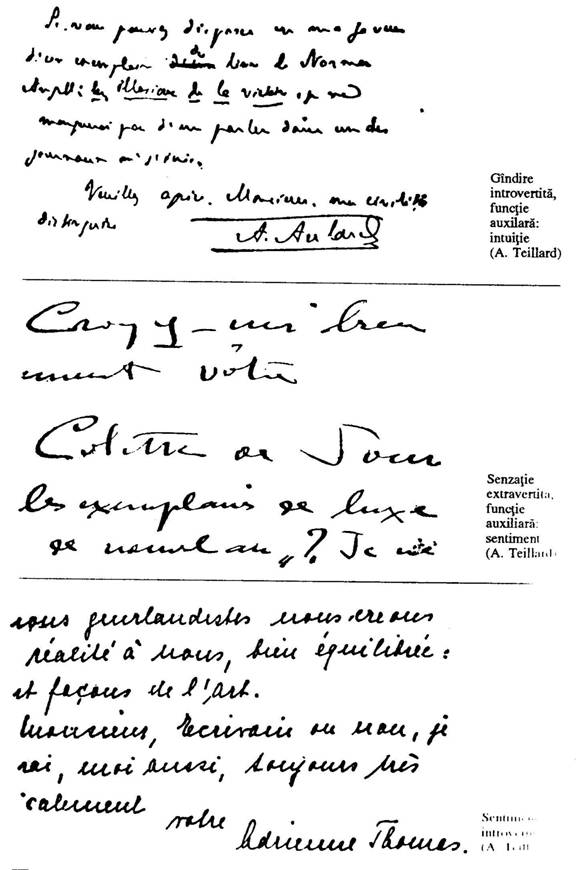 Si vous pouvez disposer en ma faveur
d'un exemplaire du livre de Norman
Angell: les illusions de la victoire, je ne
manquerai pas d'en parler dans un des
journaux où j'écris.
Veuillez agréer, Monsieur, ma
distinguée
A. Aulard
Gîndire
introvertită,
funcţie
auxilară:
intuiţie
(A. Teillard)
bien
ment vôtre
Colette de Jouv
les exemplaires de luxe
de nouvel an „? Je
Senzaţie
extravertită,
funcţie
auxiliară:
sentiment
(A. Teillard)
nous créons
réalité à nous, bien équilibrée:
et façons de l'art.
Monsieur, Ecrivain ou non, je
rai, moi aussi, toujours très
calement
votre
Adrienne Thomas.
Sentim
introver
(A Teill